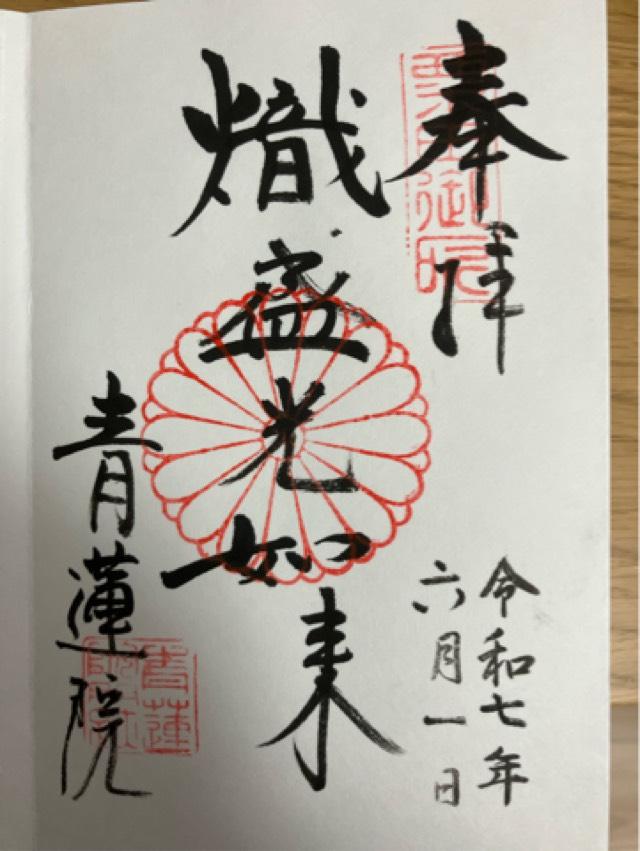 奉拝
令和七年
六月一日
熾盛光如来
青蓮院